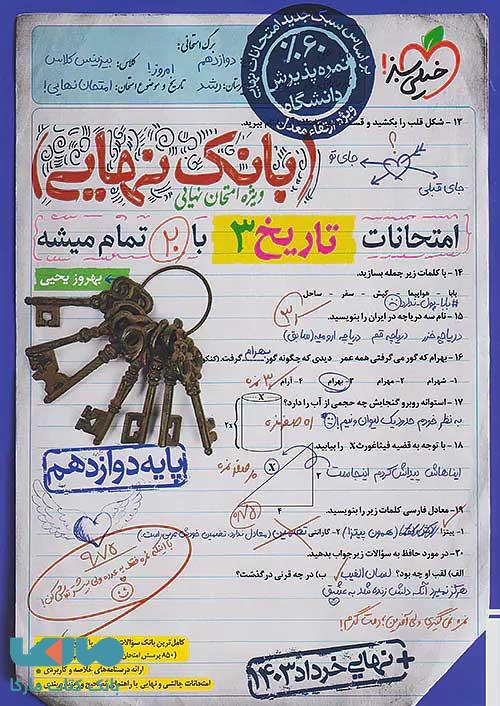 برگ امتحانی:
دوازدهم
کلاس: بیزینس کلاس
امروز!
رشد
تاریخ و موضوع امتحان: امتحان نهایی!
بر اساس سبک جدید امتحانات نهایی
۶۰٪
نمره پذیرش
دانشگاه
ویژه ارتقاء معدل
خیلی سبز!
۱۳- شکل قلب را بکشید و
ببرید.
جای تو
؟
جای قبلی
بانک نهایی
ویژه امتحان نهایی
امتحانات تاریخ ۳ با ۲۰ تمام میشه
بهروز یحیی
۱۴- با کلمات زیر جمله بسازید.
بابا - هواپیما - کیش - سفر - ساحل
#بابا_پول_نداره
۱۵- نام سه دریاچه در ایران را بنویسید.
دریاچه خزر دریاچه قم دریاچه ارومیه (سابق)
۱۶- بهرام که گور می‌گرفتی همه عمر دیدی که چگونه گور بهرام گرفت.
۱- شهرام ۲- مهرام ۳- بهرام ۴- آرام
۱۷- استوانه روبرو گنجایش چه حجمی از آب را دارد؟
به نظر خودم حدود یک لیوان و نیم!
X
۲x
۱۸- با توجه به قضیه فیثاغورث X را بیابید.
ایناهاش پیداش کردم اینجاست
X
۳
۴
پایه دوازدهم
۱۹- معادل فارسی کلمات زیر را بنویسید.
۱- پیتزا (همون پیتزا) ۲- گارانتی تضمین
۲۰- در مورد حافظ به سؤالات زیر جواب بدهید.
الف) لقب او چه بود؟ لسان الغیب ب) در چه قرنی درگذشت؟
هرگز نمیرد آنکه دلش زنده شد به عشق
۹/۷۵
کامل‌ترین بانک سوالات
ارائه درسنامه‌های خلاصه و کاربردی
امتحانات چالشی و نهایی با راهنمای تصحیح
مارکا
بانک کتاب مارکا
+ نهایی خرداد ۱۴۰۳